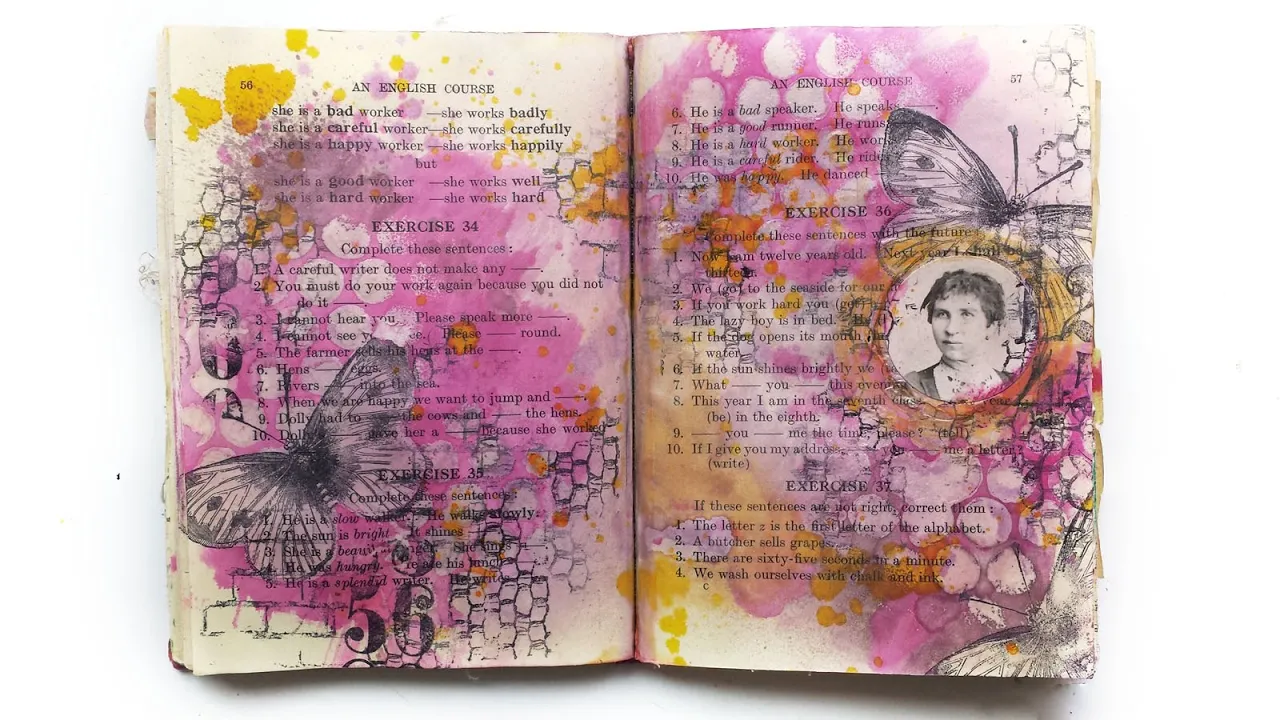 56
AN ENGLISH COURSE
she is a bad worker —she works badly
she is a careful worker—she works carefully
she is a happy worker —she works happily
but
she is a good worker —she works well
she is a hard worker —she works hard
EXERCISE 34
Complete these sentences :
1. A careful writer does not make any ——.
2. You must do your work again because you did not
do it ——
3. I cannot hear you. Please speak more ——.
4. I cannot see you Please —— round.
5. The farmer sells his hens at the ——.
6. Hens —— eggs.
7. Rivers —— into the sea.
8. When we are happy we want to jump and ——.
9. Dolly had to —— the cows and —— the hens.
10. Dolly —— gave her a —— because she worked
EXERCISE 35
Complete these sentences :
1. He is a slow walker. He walks slowly.
2. The sun is bright It shines
3. She is a She sings
4. He was hungry. ate his lunch
5. He is a splendid writer. He writes
56
AN ENGLISH COURSE
57
6. He is a bad speaker. He speaks ——.
7. He is a good runner. He runs
8. He is a hard worker. He works
9. He is a careful rider. He rides
10. He was happy. He danced
EXERCISE 36
Complete these sentences with the future :
1. Now I am twelve years old. Next year I shall be
thirteen.
2. We (go) to the seaside for our
3. If you work hard you (get)
4. The lazy boy is in bed.
5. If the dog opens its mouth
water.
6. If the sun shines brightly we
7. What —— you —— this evening
8. This year I am in the seventh class. year
(be) in the eighth.
9. —— you —— me the time, please? (tell)
10. If I give you my address, —— you —— me a letter?
(write)
EXERCISE 37
If these sentences are not right, correct them :
1. The letter z is the first letter of the alphabet.
2. A butcher sells grapes.
3. There are sixty-five seconds in a minute.
4. We wash ourselves with chalk and ink.
C